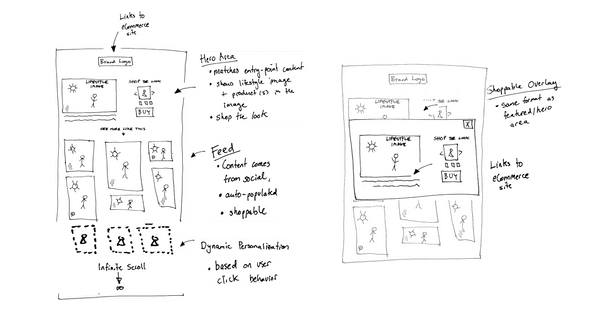 Links to
eCommerce
site
Brand Logo
LIFESTYLE
IMAGE
SHOP THE LOOK
BUY
SEE MORE LIKE THIS
Infinite Scroll
Hero Area
• matches entry-point content
• shows lifestyle image
+ product(s) in the
image
• shop the look
Feed
• Content comes
from social,
• auto-populated
• shoppable
Dynamic Personalization
• based on user
click behavior
Brand Logo
LIFESTYLE
IMAGE
SHOP THE LOOK
X
LIFESTYLE
IMAGE
SHOP THE LOOK
BUY
Shoppable Overlay
• same format as
featured/hero
area
Links to
eCommerce
site